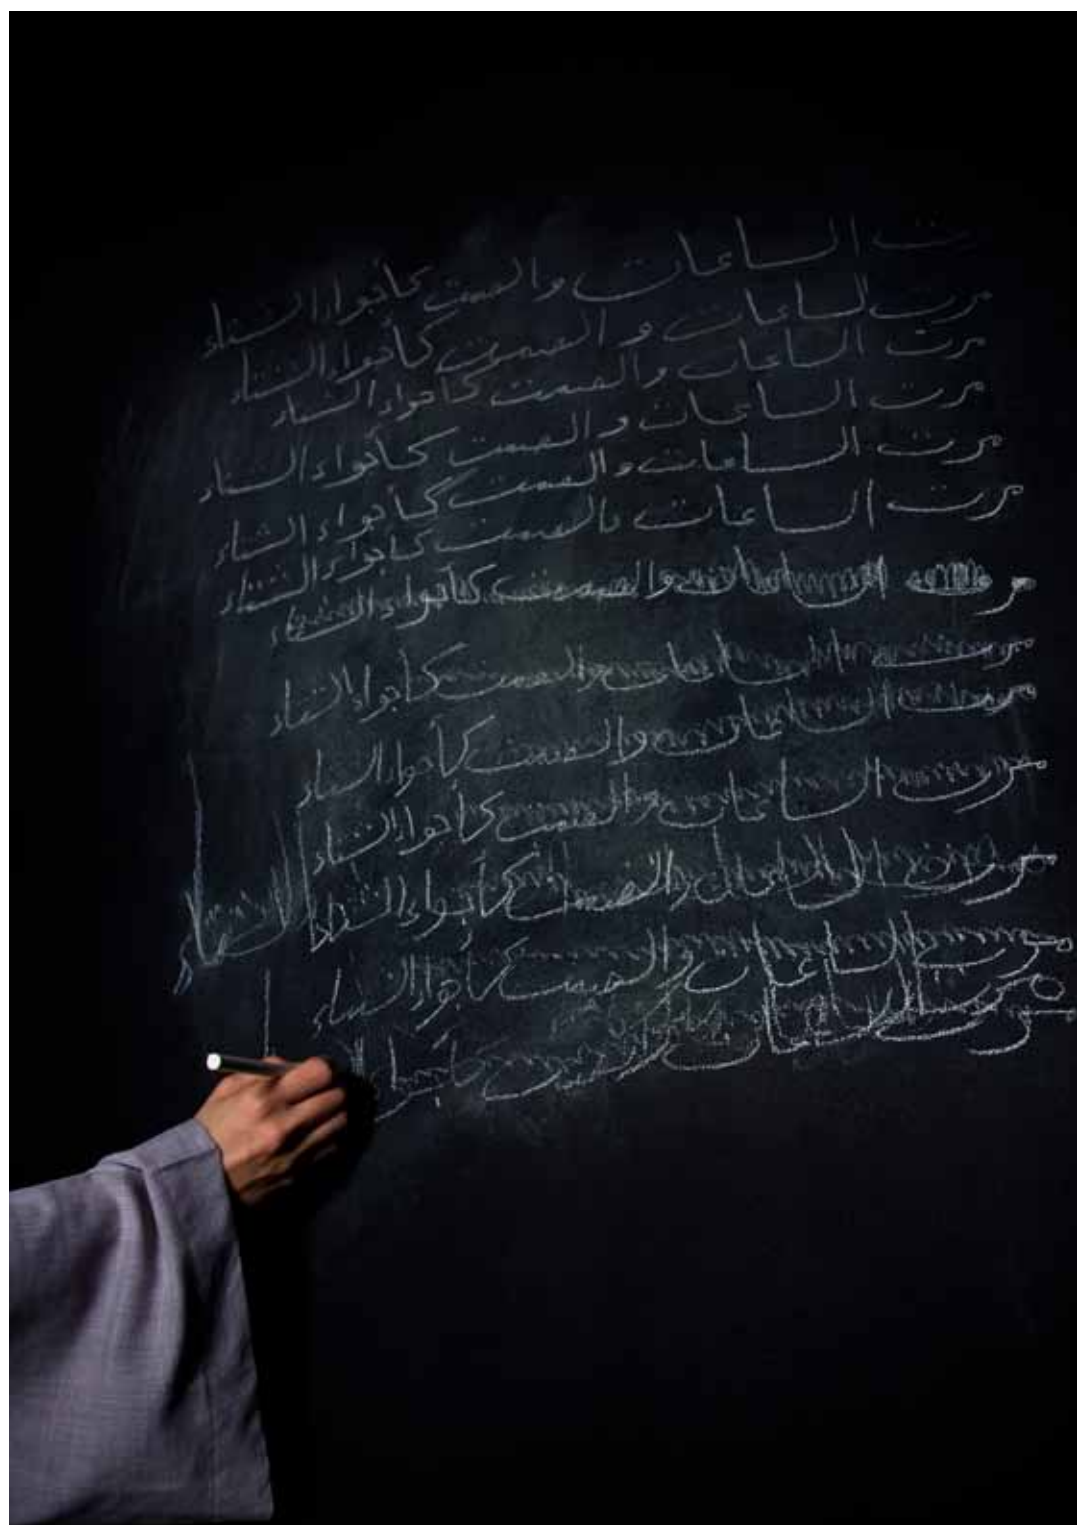 مرت الساعات والصمت كأجواء الشتاء
مرت الساعات والصمت كأجواء الشتاء
مرت الساعات والصمت كأجواء الشتاء
مرت الساعات والصمت كأجواء الشتاء
مرت الساعات والصمت كأجواء الشتاء
مرت الساعات والصمت كأجواء الشتاء
مرت الساعات والصمت كأجواء الشتاء
مرت الساعات والصمت كأجواء الشتاء
مرت الساعات والصمت كأجواء الشتاء
مرت الساعات والصمت كأجواء الشتاء
مرت الساعات والصمت كأجواء الشتاء
الشتاء
مرت الساعات والصمت كأجواء الشتاء
مرت الساعات والصمت